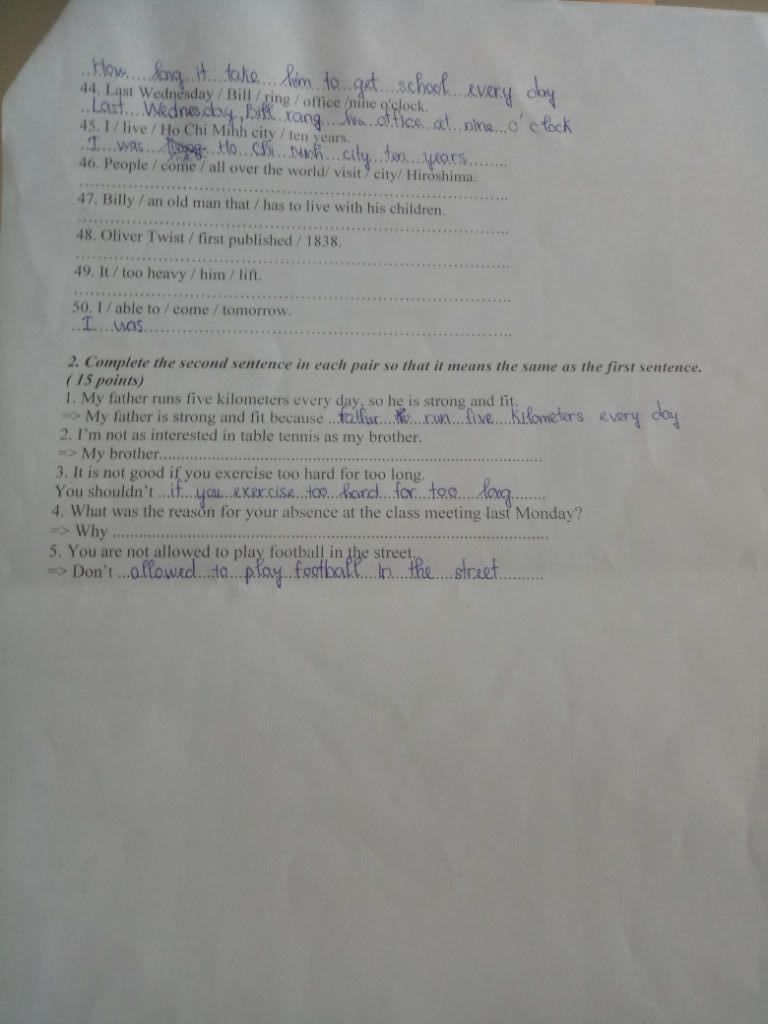 ..How....long..it...take....him..to..get...school...every day
44. Last Wednesday / Bill / ring / office /nine o'clock.
..Last....Wednesday, Bill rang...his office..at..nine...o'clock
45. I / live / Ho Chi Minh city / ten years.
..I...was... Ho..Chi..minh...city...ten...years.........
46. People / come / all over the world/ visit / city/ Hiroshima.
................................................................
47. Billy / an old man that / has to live with his children.
................................................................
48. Oliver Twist / first published / 1838.
................................................................
49. It / too heavy / him / lift.
................................................................
50. I / able to / come / tomorrow.
..I...was.......................................................
2. Complete the second sentence in each pair so that it means the same as the first sentence.
( 15 points)
1. My father runs five kilometers every day, so he is strong and fit.
=> My father is strong and fit because ..father... run...five....kilometers every day.
2. I'm not as interested in table tennis as my brother.
=> My brother................................................................
3. It is not good if you exercise too hard for too long.
You shouldn't ...if...you..exercise...too...hard..for..too...long........
4. What was the reason for your absence at the class meeting last Monday?
=> Why ................................................................
5. You are not allowed to play football in the street.
=> Don't ...allowed...to...play..football...in...the...street..........